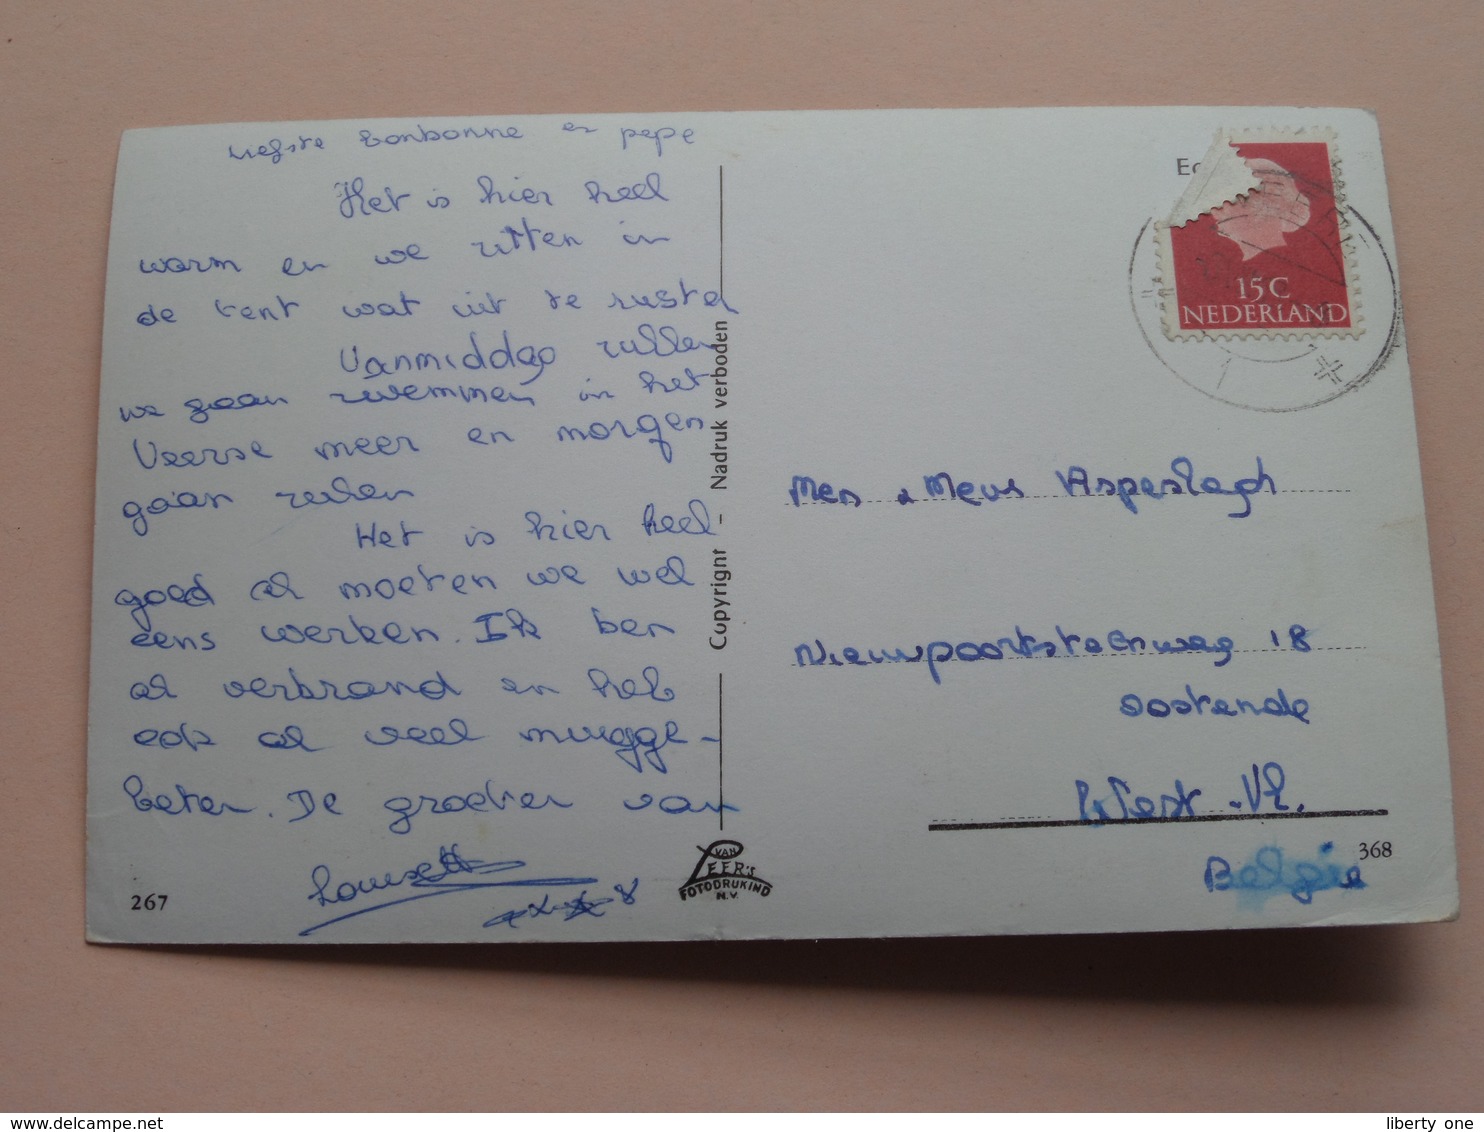 Liefste bonbonne en pepe
Het is hier heel
warm en we zitten in
de tent wat uit te rusten
Vanmiddag zullen
we gaan zwemmen in het
Veerse meer en morgen
gaan zeilen
Het is hier heel
goed al moeten we wel
eens werken. Ik ben
al verbrand en heb
ook al veel mugge-
beten. De groeten van
267
Copyright - Nadruk verboden
VAN
LEER'S
FOTODRUKIND
N.V.
Ec
15C
NEDERLAND
Men & Mevr Aspeslagh
Nieuwpoortsteenweg 18
Oostende
West-Vl.
Belgie
368
delcampe.net
liberty one